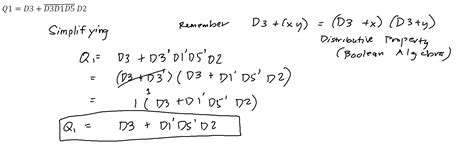 Q1 = D3 + D3D1D5 D2
Simplifying
Remember D3 + (xy) = (D3 + x) (D3 + y)
Distributive Property
(Boolean Algebra)
Q₁ = D3 + D3' D1' D5' D2
= (D3 + D3') ( D3 + D1' D5' D2)
1
= 1 ( D3 + D1' D5' D2)
Q₁ = D3 + D1' D5' D2